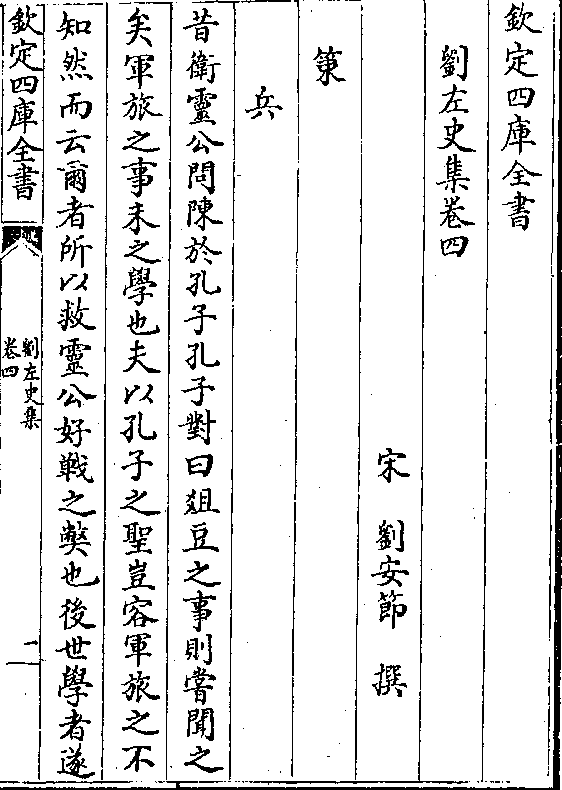 欽定四庫全書
劉左史集卷四
宋 劉安節 撰
策
兵
昔衛靈公問陳於孔子孔子對曰俎豆之事則嘗聞之
矣軍旅之事未之學也夫以孔子之聖豈容軍旅之不
知然而云爾者所以救靈公好戰之弊也後世學者遂
欽定四庫全書
劉左史集
卷四
一